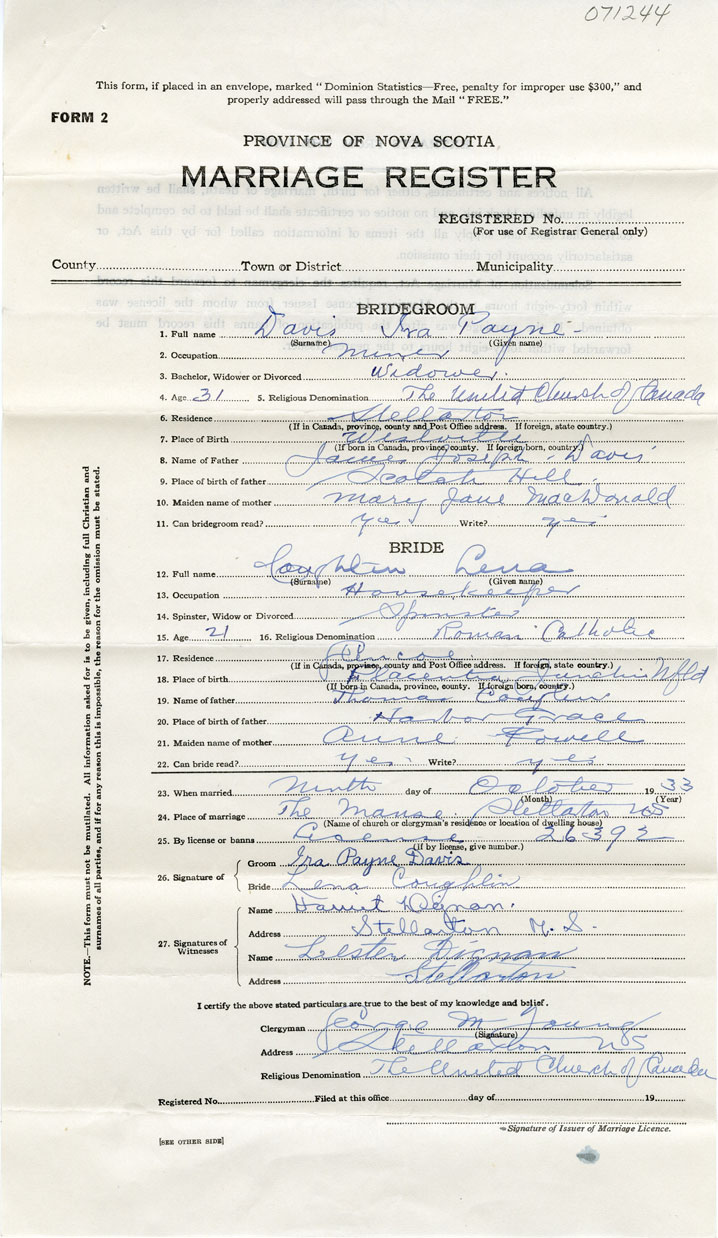 071244
This form, if placed in an envelope, marked "Dominion Statistics—Free, penalty for improper use $300," and
properly addressed will pass through the Mail "FREE."
FORM 2
PROVINCE OF NOVA SCOTIA
MARRIAGE REGISTER
REGISTERED No.
(For use of Registrar General only)
County Town or District Municipality
BRIDEGROOM
1. Full name Davis Ira Payne
(Surname) (Given name)
2. Occupation miner
3. Bachelor, Widower or Divorced Widower.
4. Age 31 5. Religious Denomination The United Church of Canada
6. Residence Stellarton
(If in Canada, province, county and Post Office address. If foreign, state country.)
7. Place of Birth Westville
(If born in Canada, province, county. If foreign born, country.)
8. Name of Father James Joseph Davis
9. Place of birth of father Scotch Hill.
10. Maiden name of mother Mary Jane MacDonald
11. Can bridegroom read? yes. Write? yes
BRIDE
12. Full name Coughlin Lena
(Surname) (Given name)
13. Occupation Housekeeper
14. Spinster, Widow or Divorced Spinster
15. Age 21 16. Religious Denomination Roman Catholic
17. Residence
(If in Canada, province, county and Post Office address. If foreign, state country.)
18. Place of birth Placentia Junction Nfld
(If born in Canada, province, county. If foreign born, country.)
19. Name of father Thomas Coughlin
20. Place of birth of father Harbor Grace
21. Maiden name of mother Anne Powell
22. Can bride read? yes. Write? yes
23. When married Ninth day of October 1933
(Month) (Year)
24. Place of marriage The Manse Stellarton NS
(Name of church or clergyman's residence or location of dwelling house)
25. By license or banns License 26392
(If by license, give number.)
26. Signature of
Groom Ira Payne Davis
Bride Lena Coughlin
27. Signatures of Witnesses
Name Harriet Dignan.
Address Stellarton N.S.
Name Lester Dignan
Address Stellarton
I certify the above stated particulars are true to the best of my knowledge and belief.
Clergyman George M Young
(Signature)
Address Stellarton NS
Religious Denomination The United Church of Canada
Registered No. Filed at this office day of 19
Signature of Issuer of Marriage Licence.
[SEE OTHER SIDE]
NOTE.—This form must not be mutilated. All information asked for is to be given, including full Christian and
surnames of all parties, and if for any reason this is impossible, the reason for the omission must be stated.